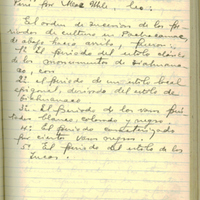 Perú por Max Uhle, lec:
El orden de sucesion de los pe-
riodos de cultura en Pachacamac,
de abajo hacia arriba, fueron:
1º El periodo del estilo clásico
de los monumentos de Tiahuana-
co, con
2º el periodo de un estilo local
epigonal, derivado del estilo de
Tiahuanaco
3º El periodo de los vasos pin-
tados blanco, colorado y negro.
4º El periodo caracterizado
por ciertos vasos negros.
5º El periodo del estilo de los
Incas.